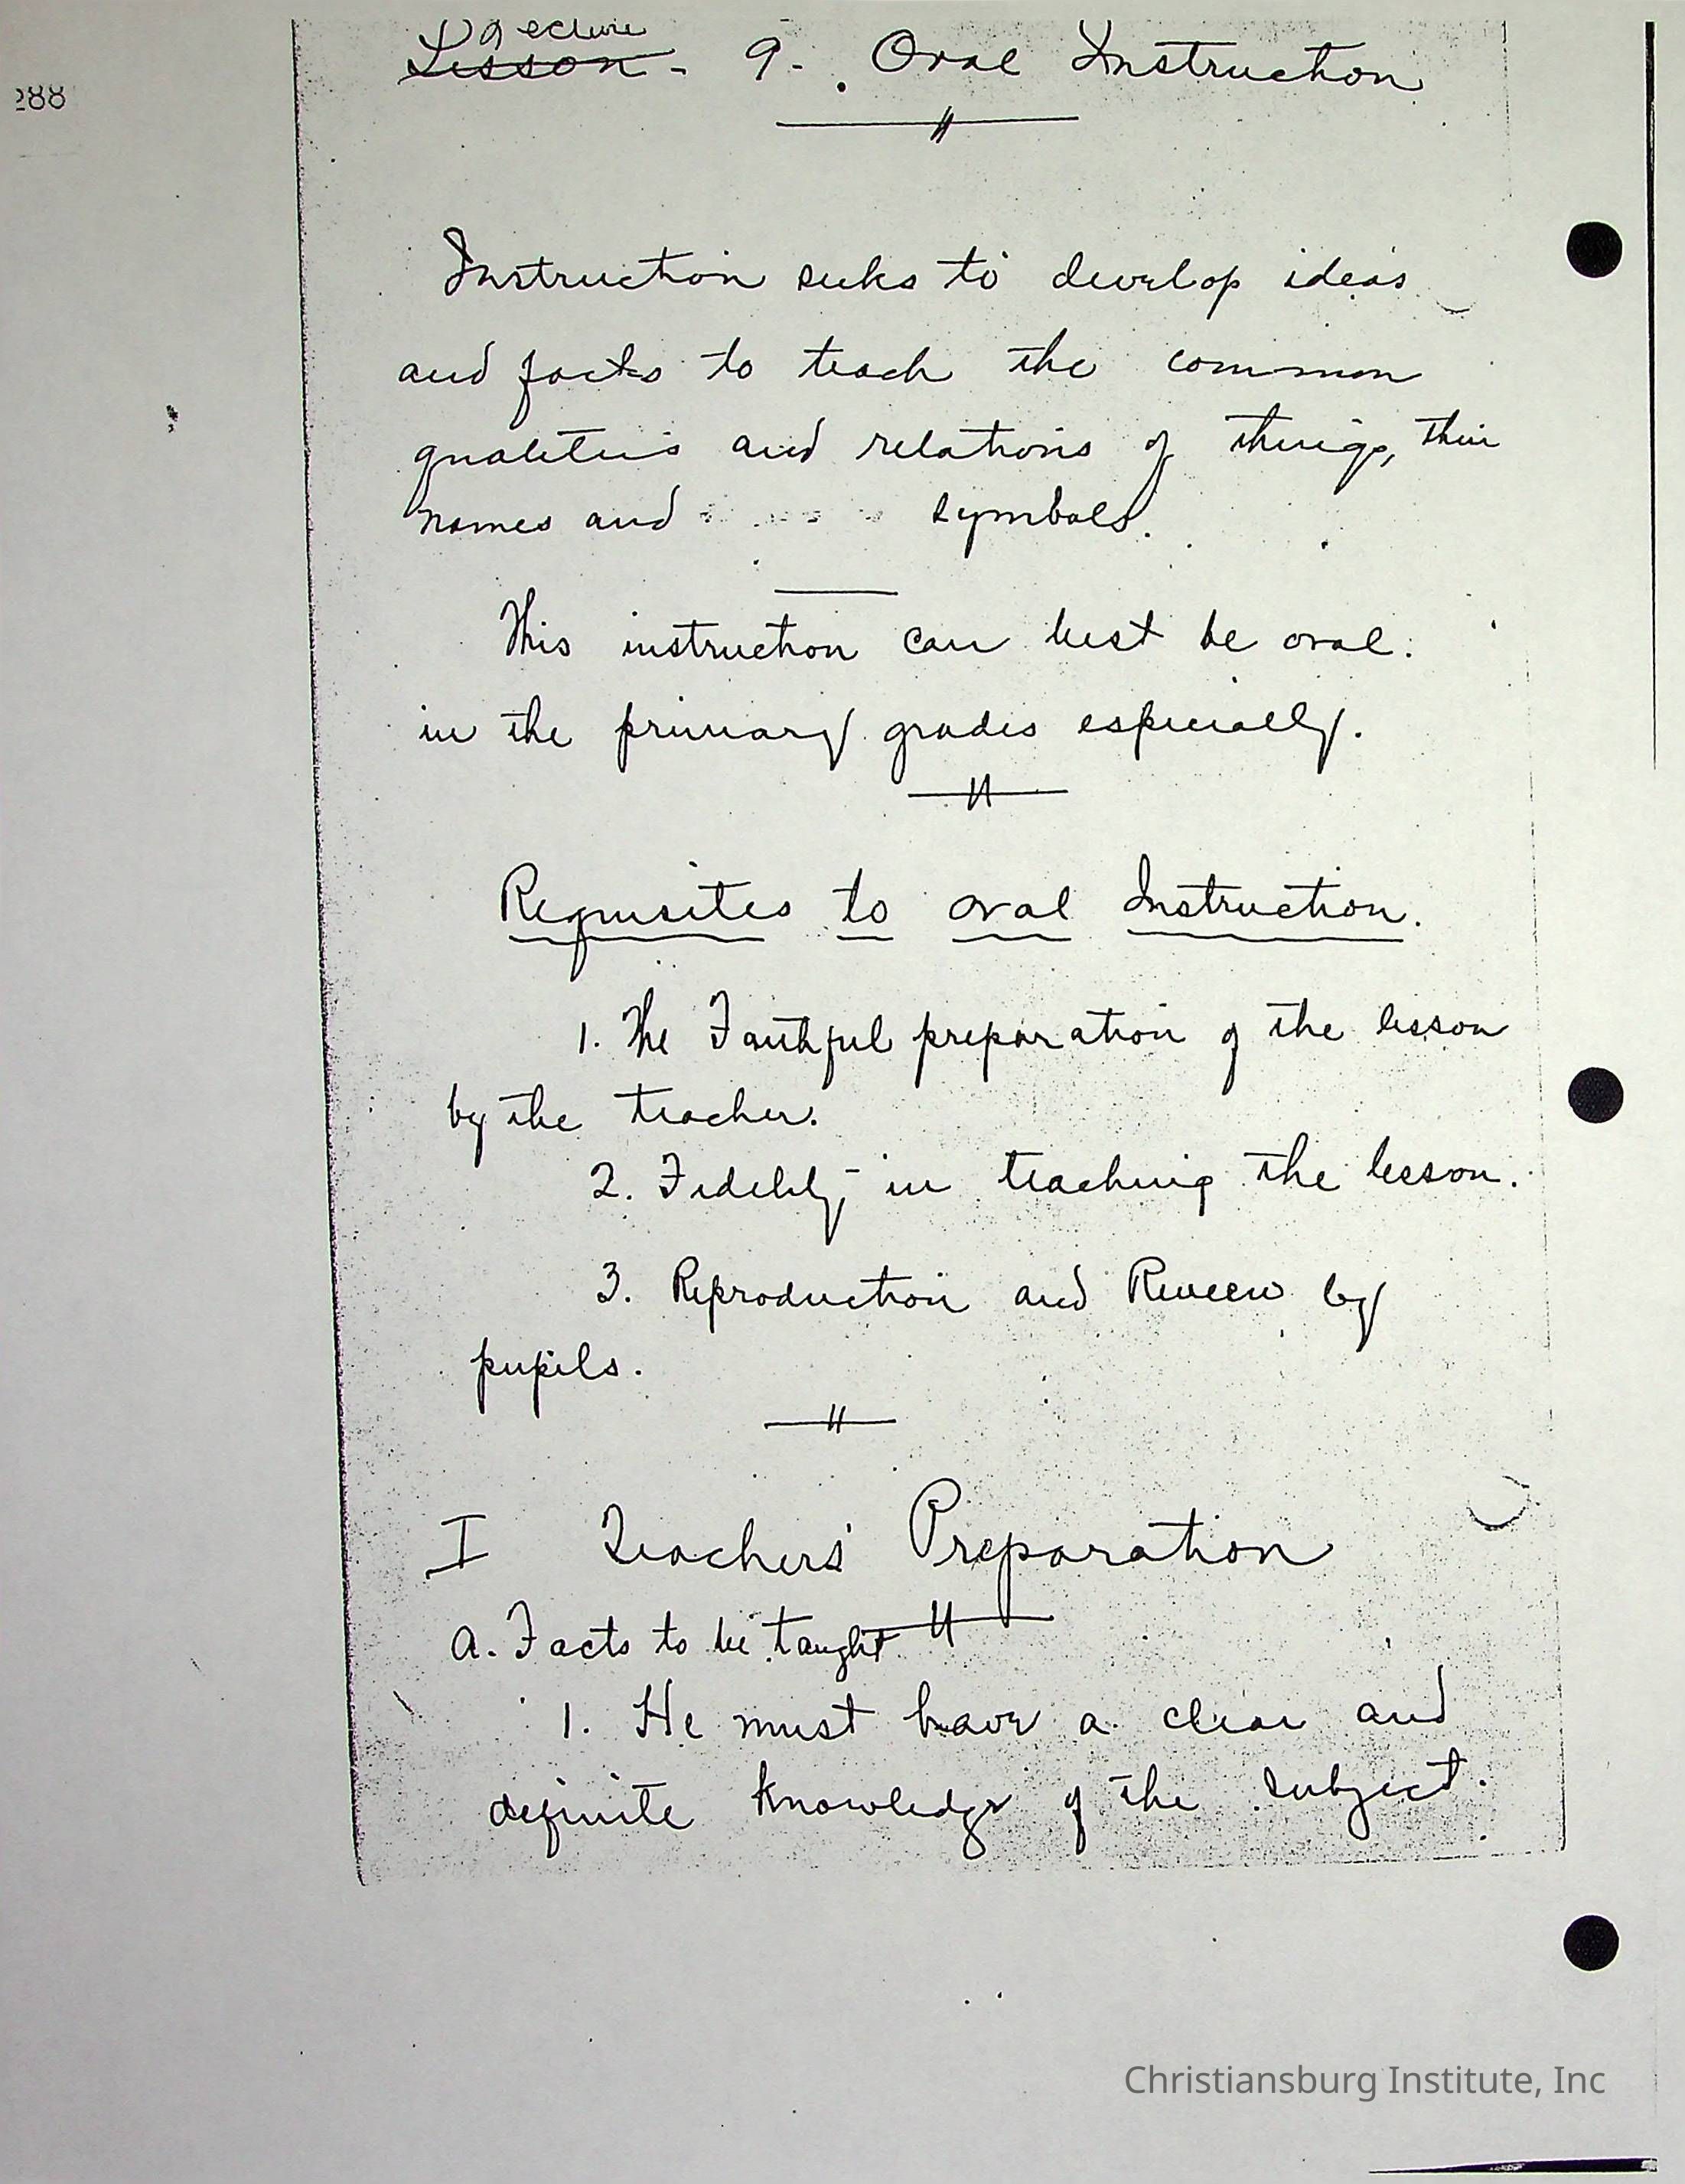 Lecture
Lesson - 9. Oral Instruction
288
Instruction seeks to develop ideas
and facts to teach the common
qualities and relations of things, their
names and symbols.
This instruction can best be oral.
in the primary grades especially.
Requisites to oral Instruction.
1. The Faithful preparation of the lesson
by the teacher.
2. Fidelity in teaching the lesson.
3. Reproduction and Review by
pupils.
I Teachers' Preparation
a. Facts to be taught
1. He must have a clear and
definite knowledge of the subject.
Christiansburg Institute, Inc